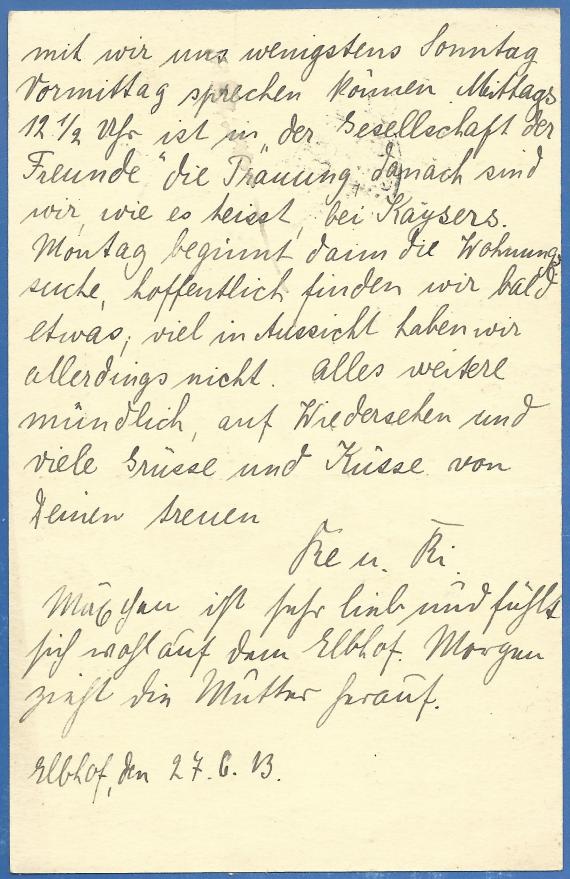 mit wir uns wenigstens Sonntag
Vormittag sprechen können. Mittags
12 1/2 Uhr ist in „der Gesellschaft der
Freunde“ die Trauung, danach sind
wir, wie es heisst, bei Kaysers.
Montag beginnt dann die Wohnungs
suche, hoffentlich finden wir bald
etwas, viel in Aussicht haben wir
allerdings nicht. Alles weitere
mündlich, auf Wiedersehen und
viele Grüsse und Küsse von
Deinen treuen
Ke u. Ki.
ist sehr lieb und fühlt
sich wohl auf dem Elbhof. Morgen
zieht die Mutter herauf.
Elbhof, den 27. 6. 13.